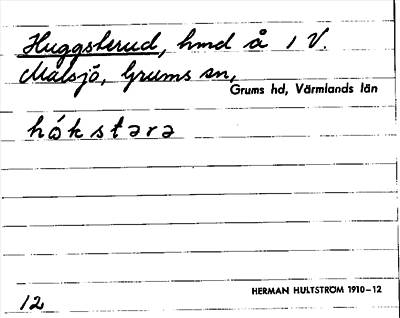 Huggsterud, hmd å 1 V.
Malsjö, Grums sn,
Grums hd, Värmlands län
hókstərə
HERMAN HULTSTRÖM 1910–12
12